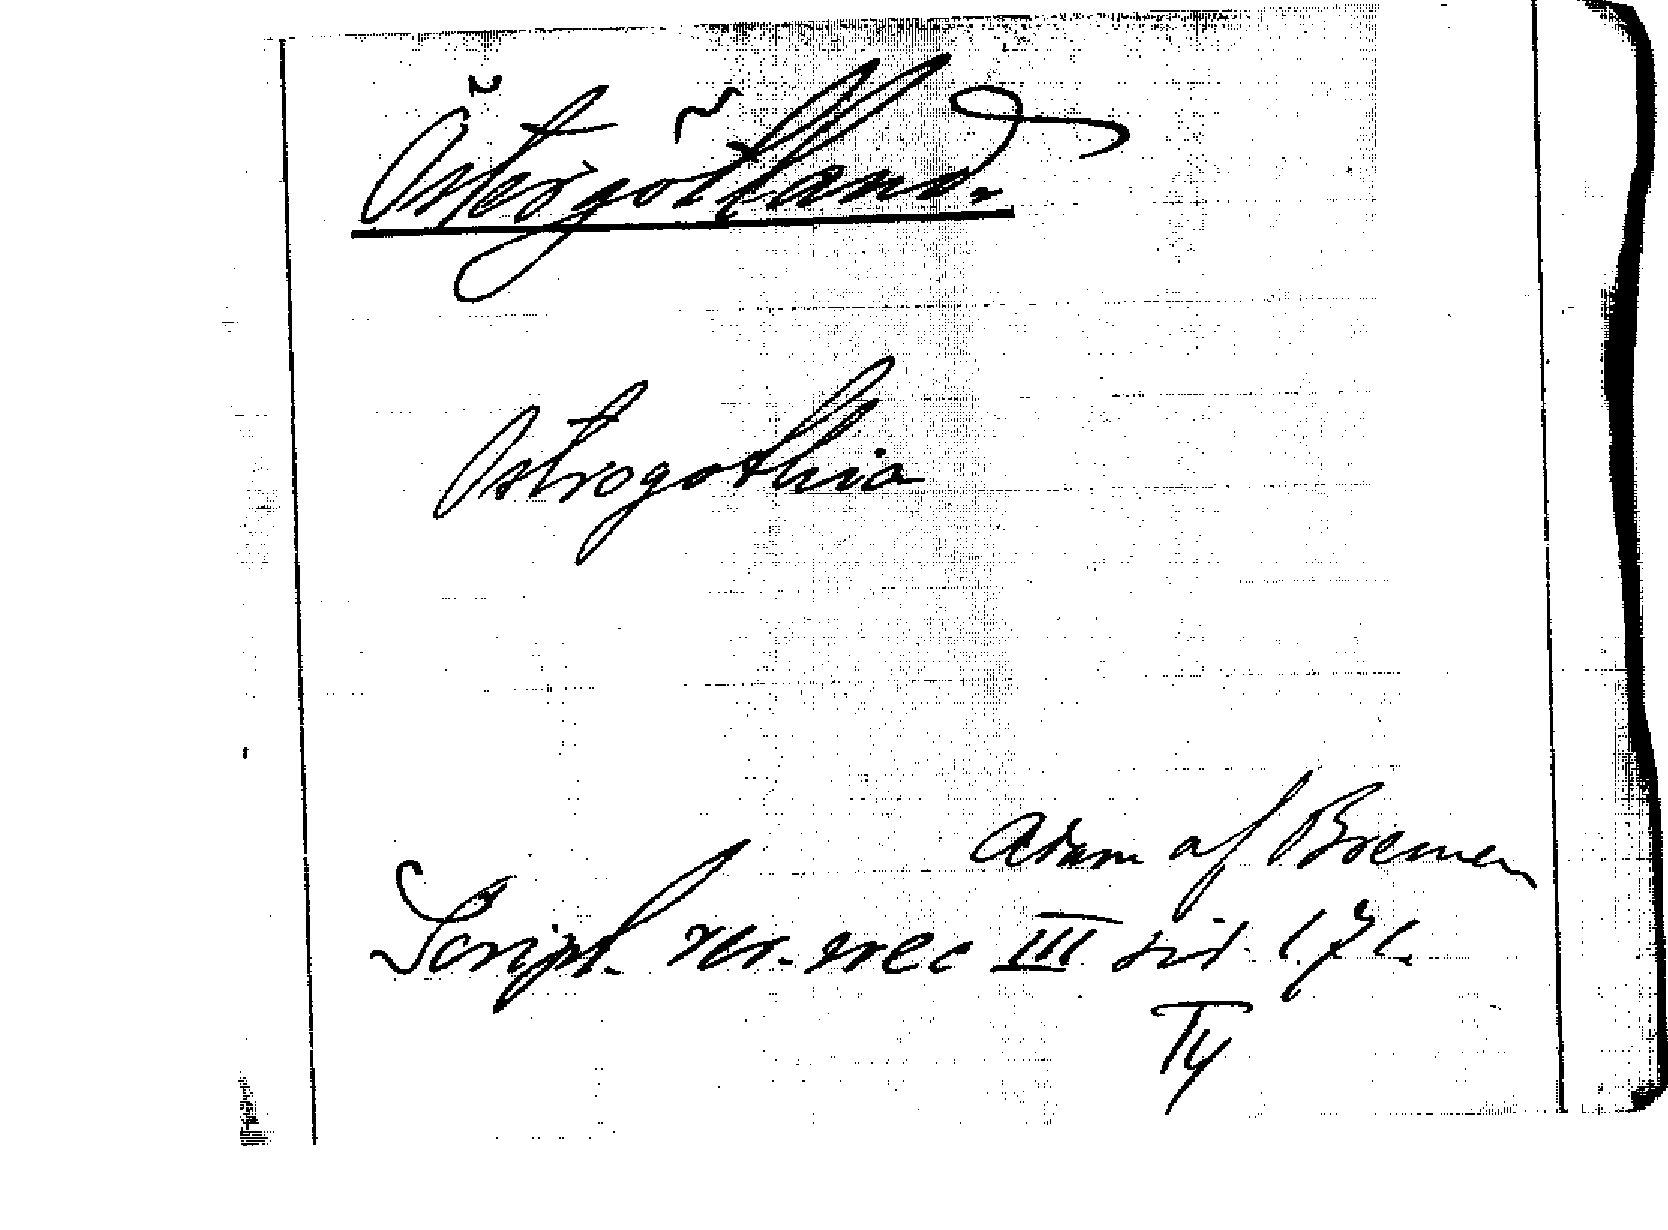 Östergötland.
Ostrogothia
Adam af Bremen
Script. rer. svec III sid. 171.
Ty